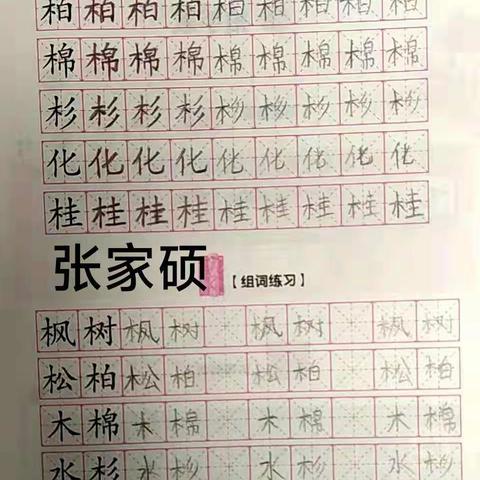 柏柏柏柏柏柏柏柏柏
棉棉棉棉棉棉棉棉棉
杉杉杉杉杉杉杉杉杉
化化化化化化化化化
桂桂桂桂桂桂桂桂桂
张家硕
【组词练习】
枫树枫树 枫树 枫树
松柏松柏 松柏 松柏
木棉木棉 木棉 木棉
水杉水杉 水杉 水杉